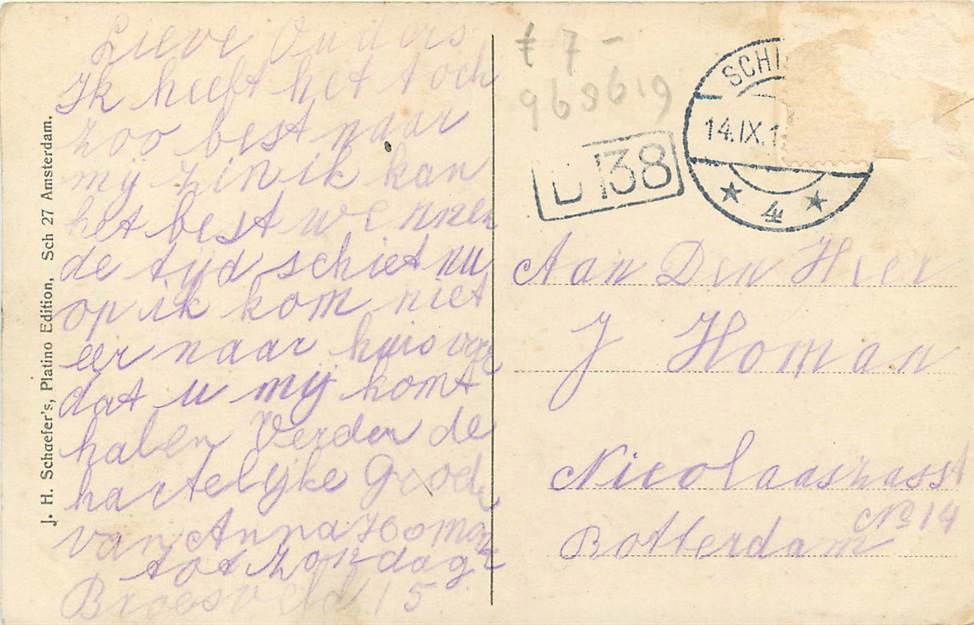 Lieve Ouders
Ik heeft het toch
zoo best naar
mij zin ik kan
het best wennen
de tijd schiet nu
op ik kom niet
eer naar huis voor
dat u mij komt
halen Verder de
hartelijke Groete
van Anna Homan
tot zondag
Broesveld 15
J. H. Schaefer's, Platino Edition, Sch 27 Amsterdam.
£ 7 -
969619
SCHI
14.IX.1
4
D 138
Aan Den Heer
J Homan
Nicolaaszasst
No 14
Rotterdam